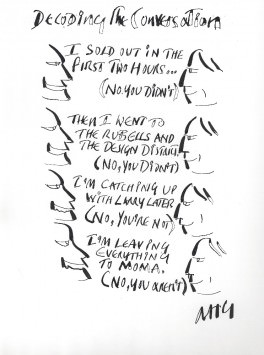 DECODING THE CONVERSATION
I SOLD OUT IN THE
FIRST TWO HOURS...
(NO, YOU DIDN'T)
THEN I WENT TO
THE RUBELLS AND
THE DESIGN DISTRICT.
(NO, YOU DIDN'T)
I'M CATCHING UP
WITH LARRY LATER
(NO, YOU'RE NOT)
I'M LEAVING
EVERYTHING
TO MOMA.
(NO, YOU AREN'T)